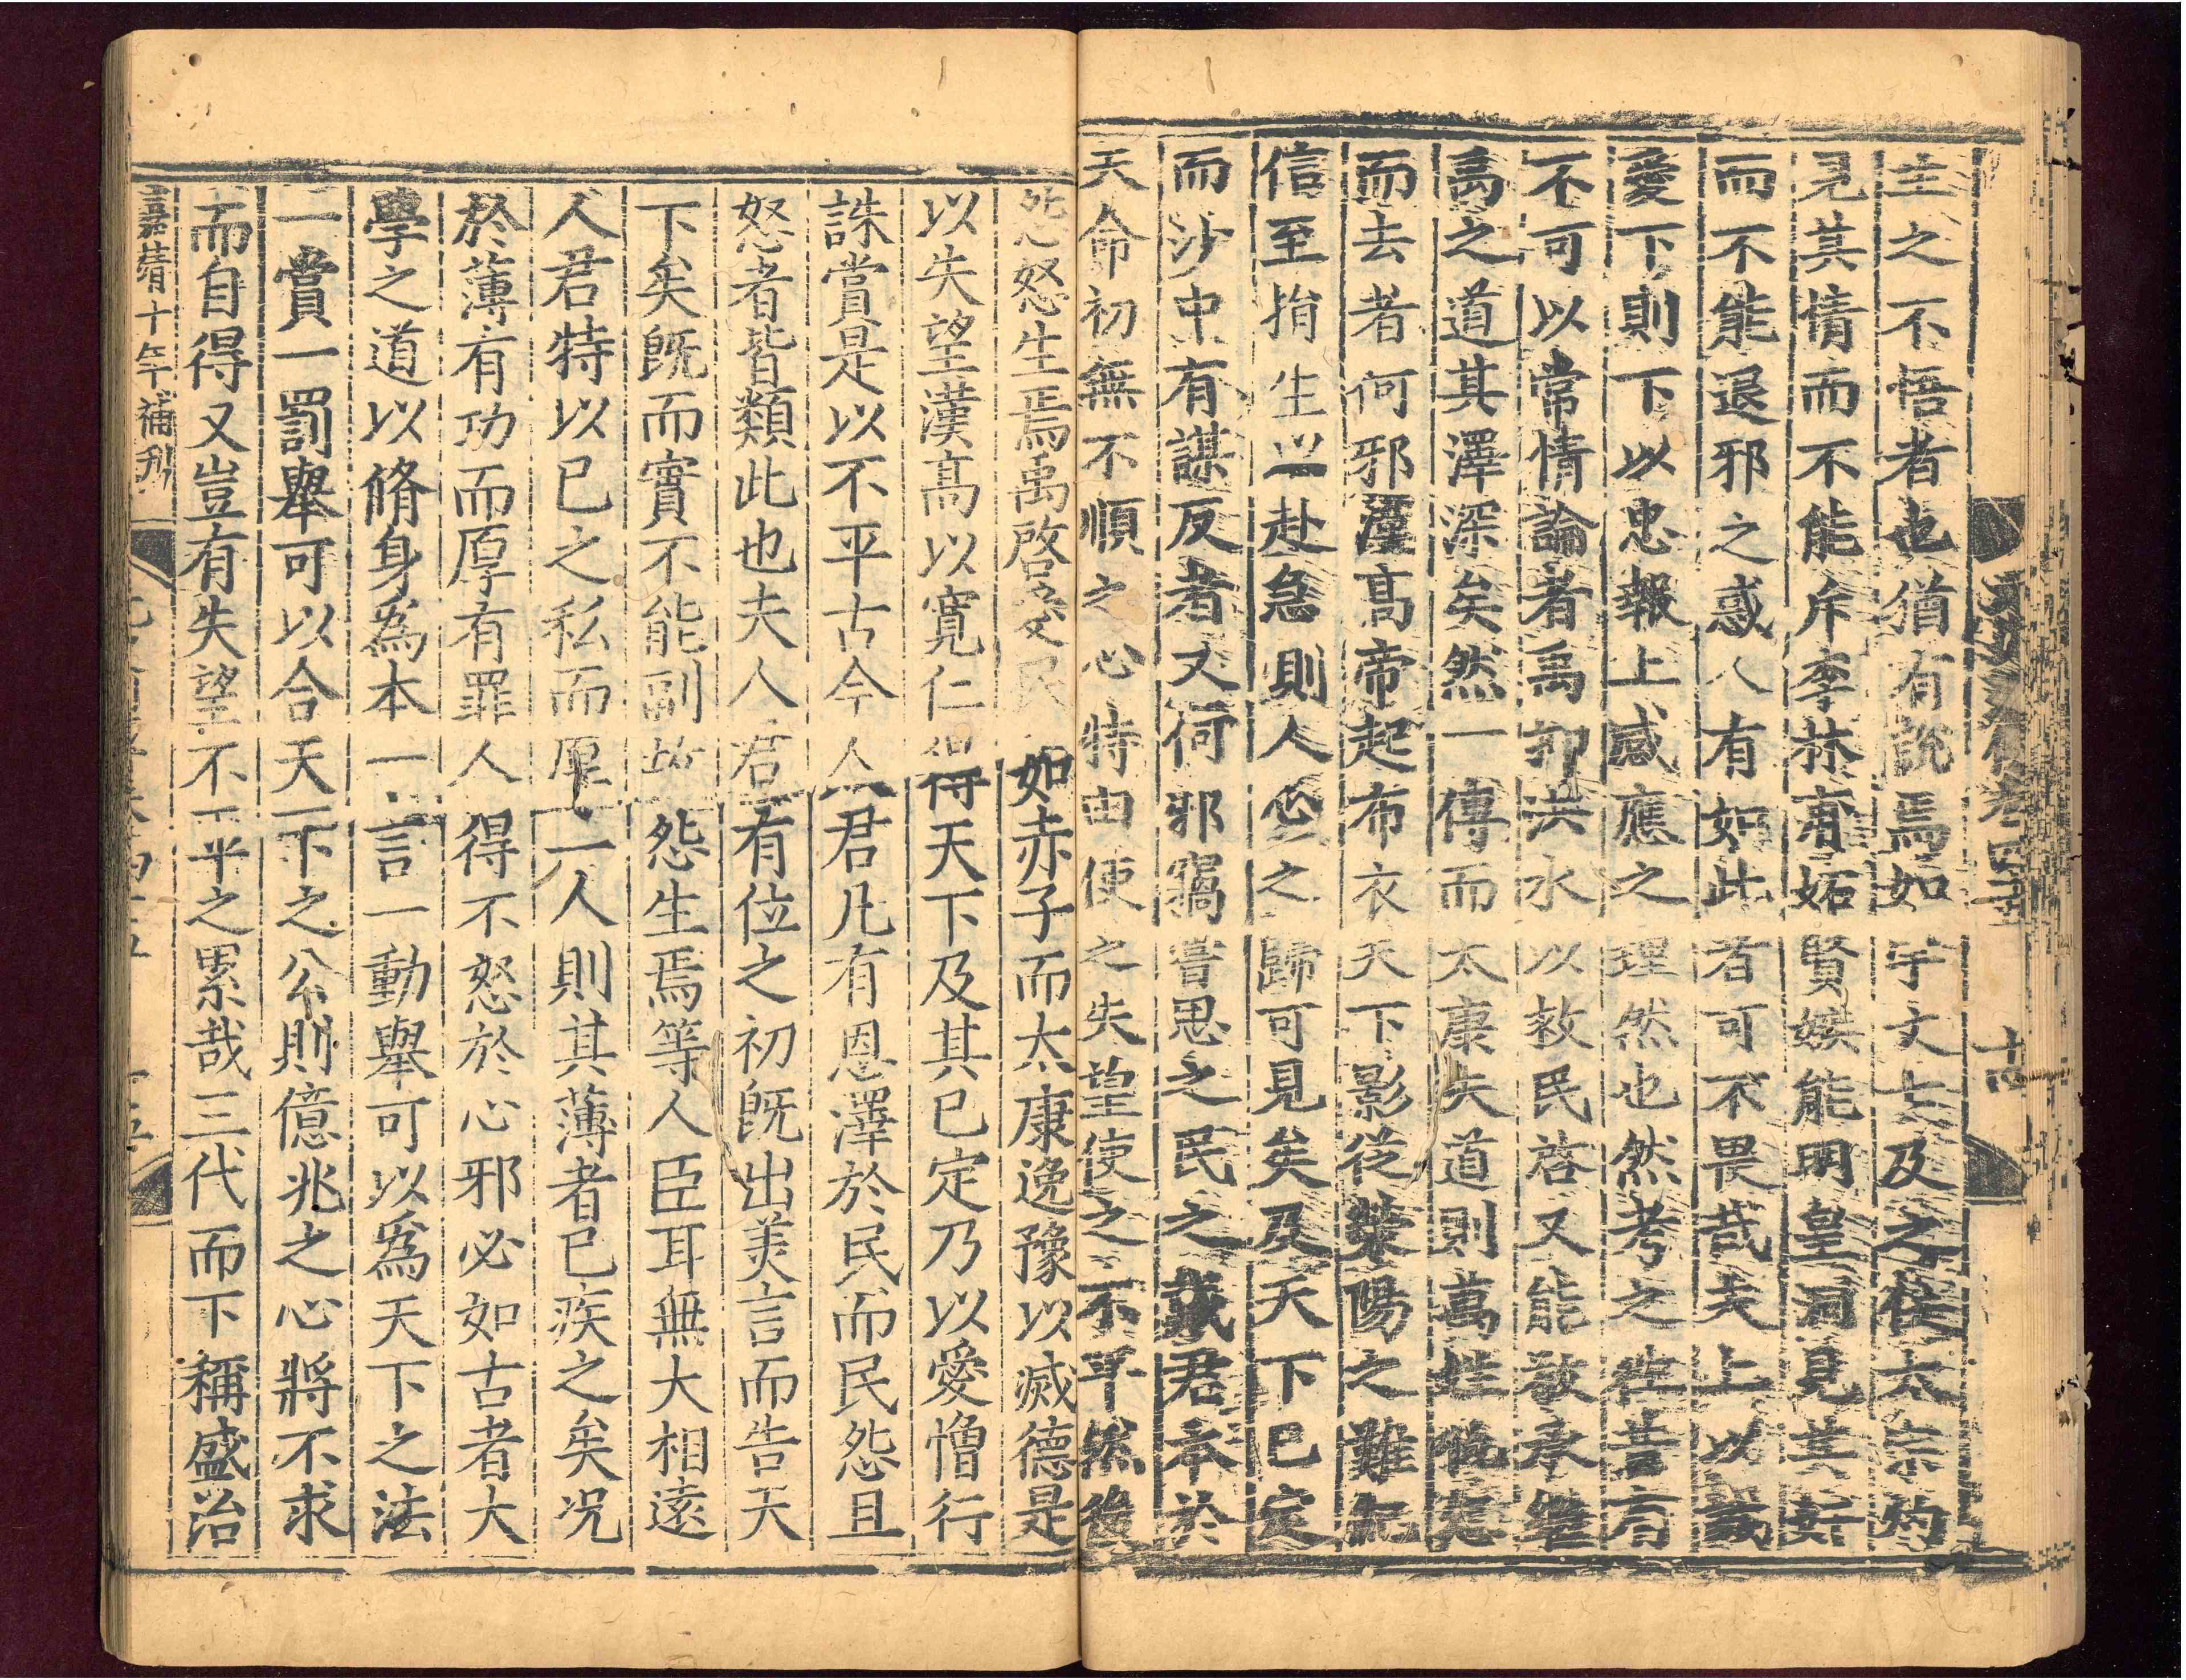 主之不悟者也猶有說焉如宇文士及之佞太宗灼
見其情而不能斥李林甫妬賢嫉能明皇洞見其奸
而不能退邪之惑人有如此者可不畏哉夫上以誠
愛下則下以忠報上感應之理然也然考之往昔有
不可以常情論者禹抑洪水以救民啓又能敬承繼
禹之道其澤深矣然一傳而太康失道則萬姓仇怨
而去者何邪漢髙帝起布衣天下影從滎陽之難紀
信至捐生以赴急則人心之歸可見矣及天下已定
而沙中有謀反者又何邪竊嘗思之民之戴君本於
天命初無不順之心特由使之失望使之不平然後
怨怒生焉禹啓愛民如赤子而太康逸豫以滅德是
以失望漢髙以寬仁得天下及其已定乃以愛憎行
誅賞是以不平古今人君凡有恩澤於民而民怨且
怒者皆類此也夫人君有位之初旣出美言而告天
下矣旣而實不能副故怨生焉等人臣耳無大相遠
人君特以已之私而厚一人則其薄者已疾之矣况
於薄有功而厚有罪人得不怒於心邪必如古者大
學之道以脩身爲本一言一動舉可以爲天下之法
一賞一罰舉可以合天下之公則億兆之心將不求
而自得又豈有失望不平之累哉三代而下稱盛治
嘉靖十年補刋